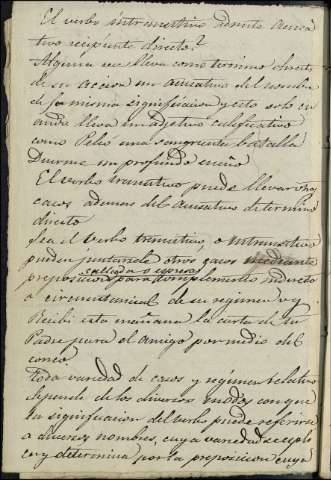 El verbo intransitivo admite acusa
tivo recipiente directo?
Alguna vez lleva como termino directo
de su accion un acusativo del nombre
de la misma significacion y esto es cu
ando lleva un adjetivo calificativo
como Peleó una sangrienta batalla
Duerme un profundo sueño
El verbo transitivo puede llevar otros
casos ademas del acusativo determino
directo
Sea el verbo transitivo, o intransitivo
pueden juntarsele otros casos mediante
callada o espresa
preposicion para complemento indirecto
o circunstancial de su regimen v.g.
Recibi esta mañana la carta de tu
Padre para el amigo por medio del
correo.
Toda variedad de casos y régimen relativo
depende de los diversos modos con que
la significacion del verbo puede referirse
a diversos nombres, cuya variedad se esplica
y determina por la preposicion cuya